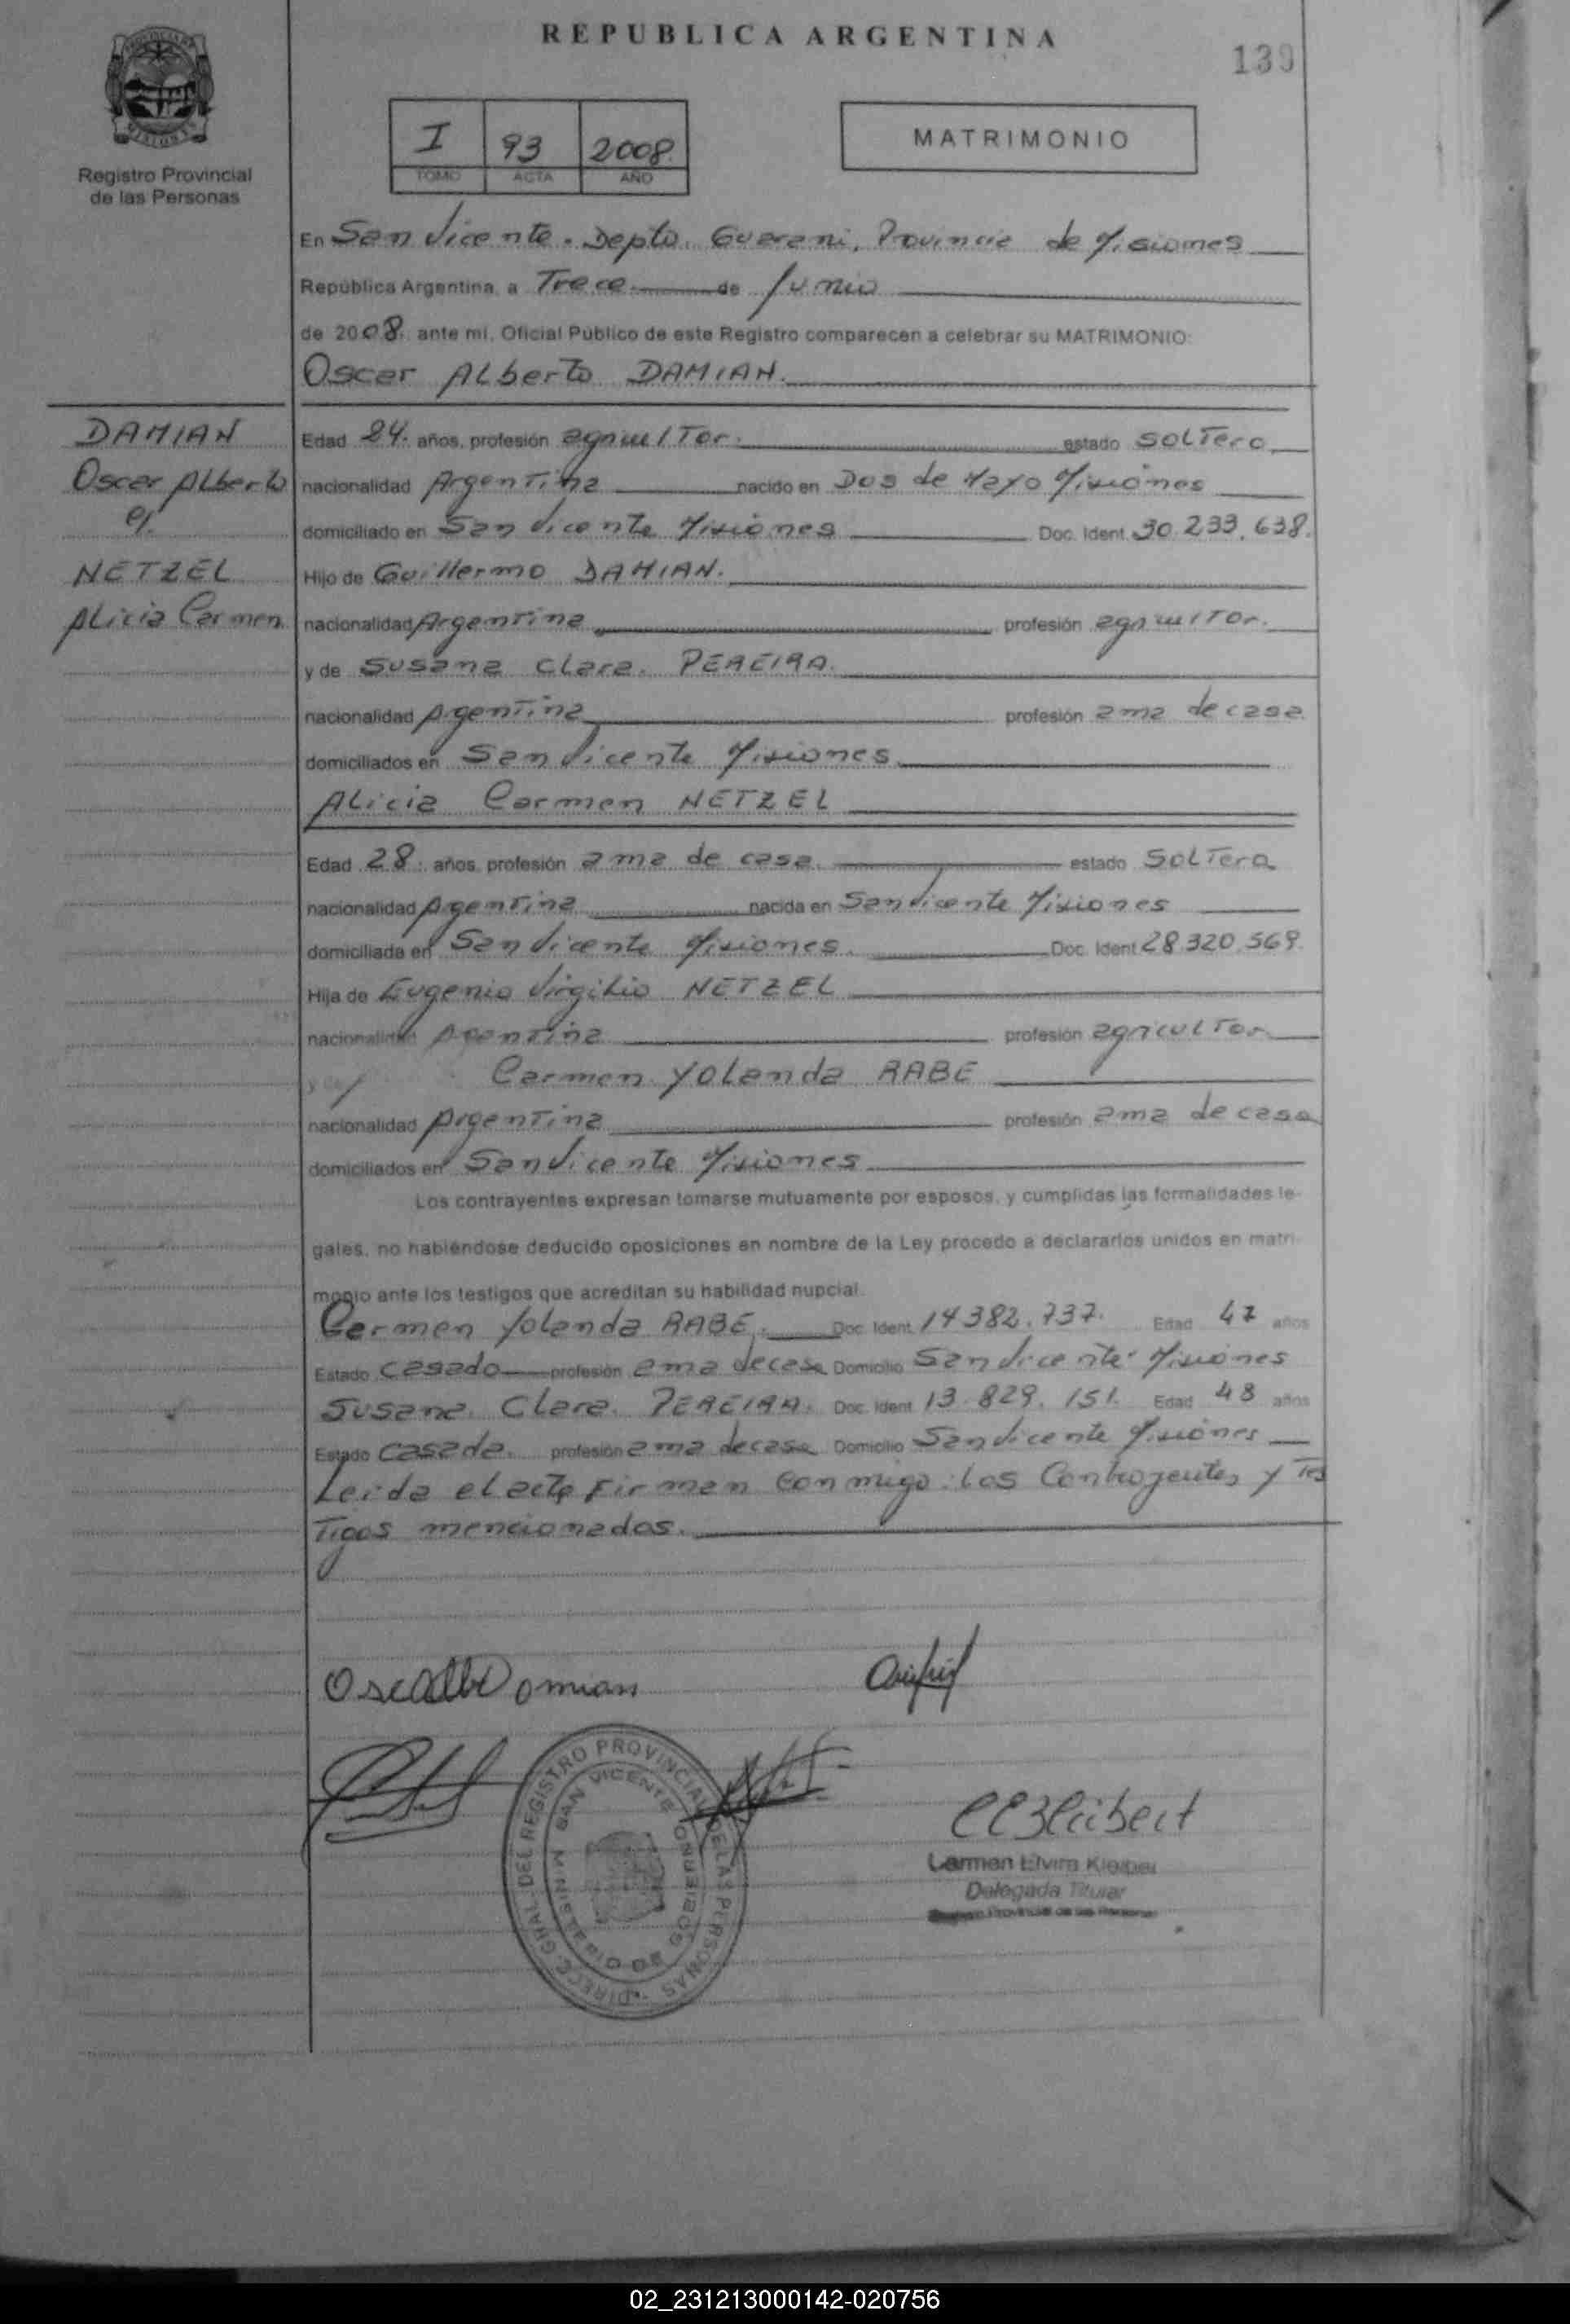 REPUBLICA ARGENTINA
139
PROVINCIA DE
MISIONES
Registro Provincial
de las Personas
I 93 2008
TOMO ACTA AÑO
MATRIMONIO
En San Vicente. Depto. Guarani, Provincia de Misiones
República Argentina, a Trece de Junio
de 2008. ante mi, Oficial Público de este Registro comparecen a celebrar su MATRIMONIO:
Oscar ALberto DAMIAN.
DAMIAN
Oscar ALberto
c/.
NETZEL
ALicia Carmen
Edad 24. años, profesión agricultor. estado SOLTero
nacionalidad Argentina nacido en Dos de Mayo Misiones
domiciliado en San Vicente Misiones Doc. Ident. 30.233.638.
Hijo de Guillermo DAMIAN.
nacionalidad Argentina profesión agricultor.
y de Susana Clara. PEREIRA.
nacionalidad Argentina profesión ama de casa
domiciliados en San Vicente Misiones.
ALicia Carmen NETZEL
Edad 28. años, profesión ama de casa. estado SOLTera
nacionalidad Argentina nacida en San Vicente Misiones
domiciliada en San Vicente Misiones. Doc. Ident 28.320.569.
Hija de Eugenio Virgilio NETZEL
nacionalidad Argentina profesión agricultor
y de Carmen Yolanda RABE
nacionalidad Argentina profesión ama de casa
domiciliados en San Vicente Misiones
Los contrayentes expresan tomarse mutuamente por esposos, y cumplidas las formalidades le-
gales, no habiéndose deducido oposiciones en nombre de la Ley procedo a declararlos unidos en matri-
monio ante los testigos que acreditan su habilidad nupcial.
Carmen Yolanda RABE. Doc. Ident. 14382.737. Edad 47 años
Estado casado profesión ama de casa Domicilio San Vicente Misiones
Susana. Clara. PEREIRA. Doc. Ident. 13.829.151. Edad 48 años
Estado casada. profesión ama de casa Domicilio San Vicente Misiones
Leida el acta Firman conmigo: Los Contrayentes y Tes
Tigos mencionados.
DIRECC. GRAL. DEL REGISTRO PROVINCIAL DE LAS PERSONAS
MINISTERIO DE GOBIERNO
SAN VICENTE
Carmen Elvira
Delegada Titular
Registro Provincial de las Personas
02_231213000142-020756